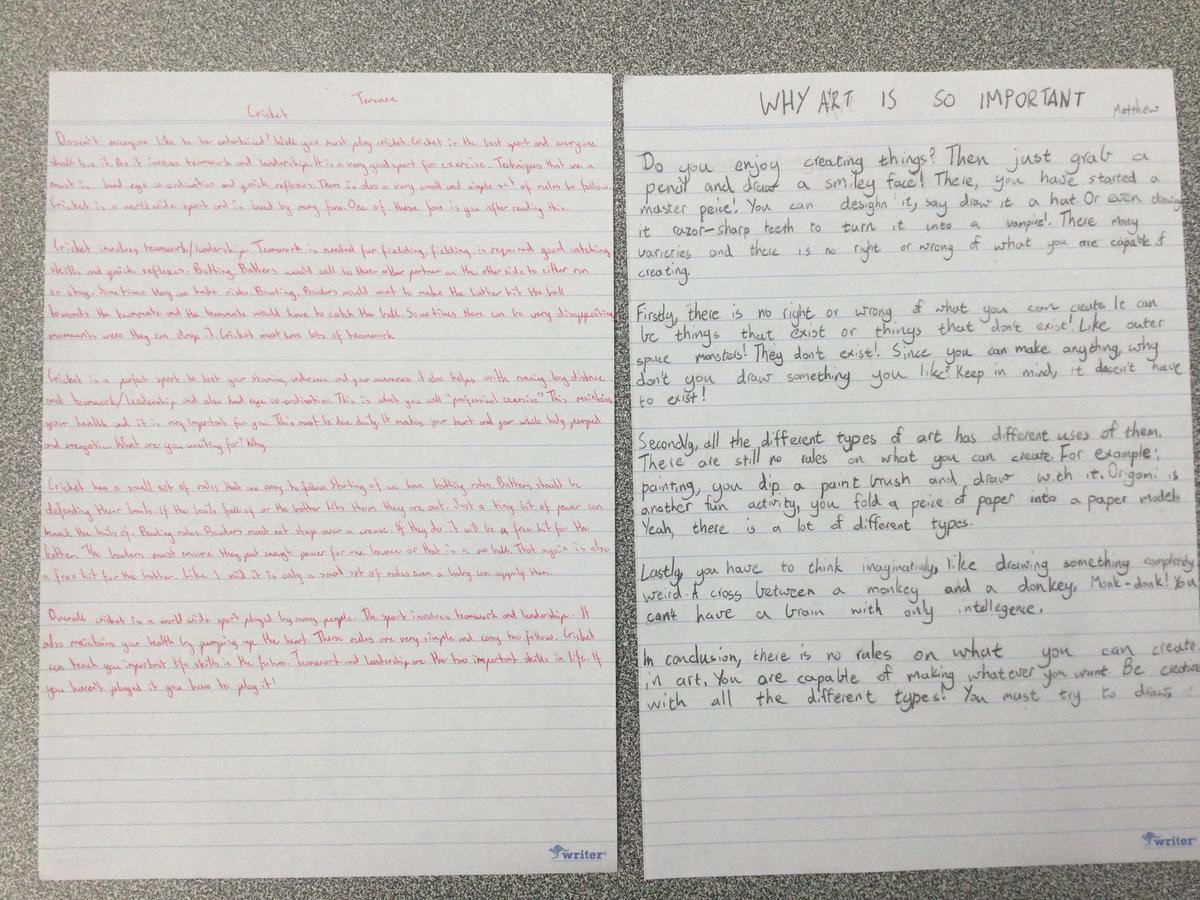 Terence
Cricket
Doesn't everyone like to be entertained? Well you must play cricket. Cricket is the best sport and everyone
shall love it. As it involves teamwork and leadership. It is a very good sport for exercise. Techniques that are a
must is hand eye co-ordination and quick reflexes. There is also a very small and simple set of rules to follow.
Cricket is a world wide sport and is loved by many fans. One of those fans is you after reading this.
Cricket involves teamwork/leadership. Teamwork is needed for fielding, fielding is required good catching
skills and quick reflexes. Batting. Batters would call to there other partner on the other side to either run
or stay. Sometimes they can take risks. Bowling. Bowlers would want to make the batter hit the ball
towards the teammate and the teammate would have to catch the ball. Sometimes there can be very disappointing
moments were they can drop it. Cricket must have lots of teamwork
Cricket is a perfect sport to test your stamina, endurance and your awareness. It also helps with running long distance
and teamwork/leadership and also hand eye co-ordination. This is what you call "professional exercise". This maintains
your health and it is very important for you. This must be done daily. It makes your heart and your whole body pumped
and energetic... What are you waiting for? Why
Cricket has a small set of rules that are easy to follow. Starting of we have batting rules. Batters should be
defending their bails. If the bails fall of or the batter hits them they are out. Just a tiny bit of power can
knock the bails of. Bowling rules. Bowlers must not step over a crease. If they do it will be a free hit for the
batter. The bowlers must ensure they put enough power for one bounce or that is a no ball. That again is also
a free hit for the batter. Like I said it is only a small set of rules even a baby can apply them.
Overall cricket is a world wide sport played by many people. The sport involves teamwork and leadership. It
also maintains your health by pumping up the heart. These rules are very simple and easy too follow. Cricket
can teach you important life skills in the future. Teamwork and leadership are the two important skills in life. If
you haven't played it you have to play it!
writer
WHY ART IS SO IMPORTANT
Matthew
Do you enjoy creating things? Then just grab a
pencil and draw a smiley face! There, you have started a
master peice! You can desighn it, say draw it a hat. Or even
it razor-sharp teeth to turn it into a vampire!. There many
varieries and there is no right or wrong of what you are capable of
creating.
Firstly, there is no right or wrong of what you can create. It can
be things that exist or things that don't exist! Like outer
space monsters! They don't exist!. Since you can make anything, why
don't you draw something you like? Keep in mind, it doesn't have
to exist!
Secondly, all the different types of art has different uses of them.
There are still no rules on what you can create. For example:
painting, you dip a paint brush and draw with it. Origami is
another fun activity, you fold a peice of paper into a paper model.
Yeah, there is a lot of different types.
Lastly, you have to think imaginatively, like drawing something completely
weird. A cross between a monkey and a donkey, Monk-donk! You
can't have a brain with only intellegence.
In conclusion, there is no rules on what you can create
in art. You are capable of making whatever you want. Be creative
with all the different types! You must try to draw,
writer